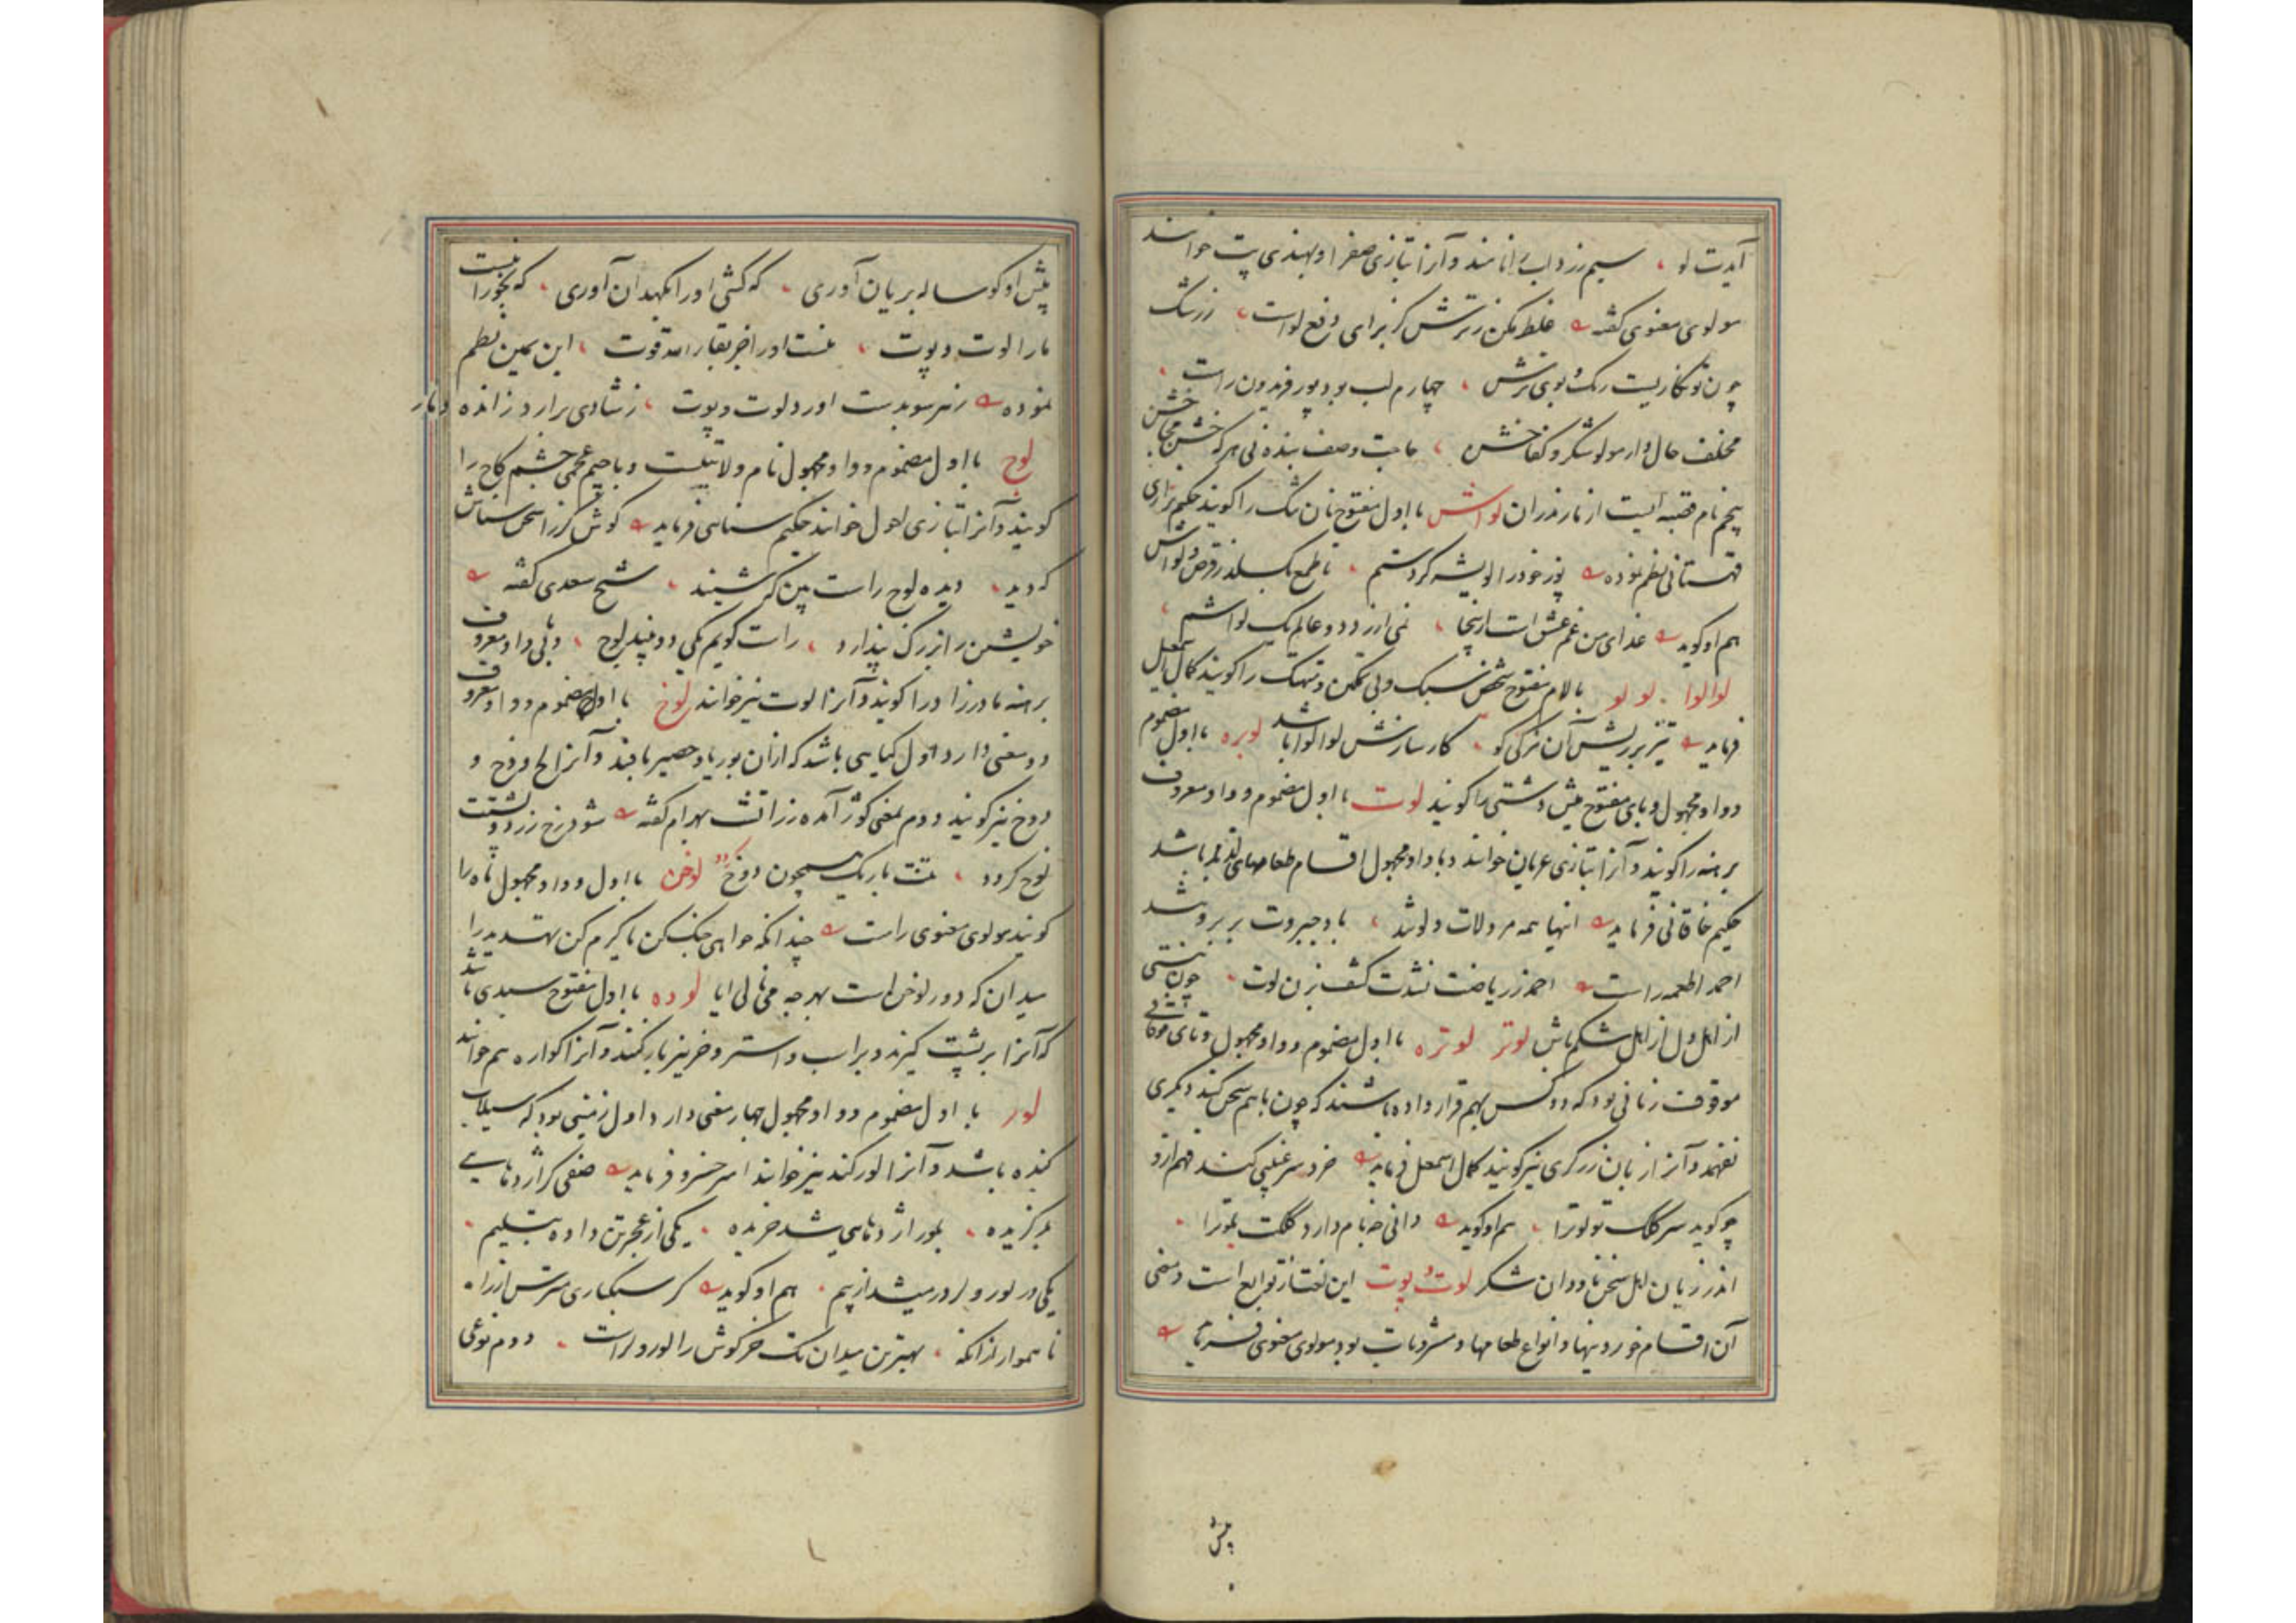 آیدت لو ، سیم زرداب را نامند و آنرا بتازی صفرا و بهندی پت خوانند
مولوی معنوی گفته غلط مکن ز ترش کز برای دفع لواست ، زرشک
چون تو نگاریست رنگ و بوی ترش ، چهارم لب بود پور فریدون راست
مخلف حال دار مولو شکر و کفا خش ، حاجت وصف بنده نی هر که
پنجم نام قصبه ایست از مازندران لواش با اول مفتوح نان تنک را گویند حکیم نزاری
قهستانی نظم نموده پوز خود را لویشه کردستم ، تا طمع بگسلد ز قرص و لواش
هم او گوید غذای من غم عشق است ازینجا ، نمی ارزد دو عالم یک لواشم
لوالوا . لو لو با لام مفتوح شخص سبک و بی تمکین و تهتک را گویند کمال اسمعیل
فرماید تیز بر ریش آن نرکی کو ، کار سازنش لوالوا باشد لوبره با اول مضموم
و واو مجهول و بای مفتوح میش دشتی را گویند لوت با اول مضموم و واو معروف
برهنه را گویند و آنرا بتازی عریان خوانند و با واو مجهول اقسام طعامهای لذیذ باشد
حکیم خاقانی فرماید اینها همه مرد لات و لوتند ، باد جبروت بر بروتند
احمد اطعمه راست احمد ز ریاضت نشدت کشف بزن لوت ، چون نیستی
از اهل دل از اهل شکم باش لوتر لوتره با اول مضموم و واو مجهول و تای فوقانی
موقوف زبانی بود که دو کس بهم قرار داده باشند که چون باهم سخن کنند دیگری
نفهمد و آنرا زبان زرگری نیز گویند کمال اسمعیل فرماید خرد سر غیبی کند فهم ازو
چو گوید سر کلک تو لوترا ، هم او گوید دانی چه نام دارد کلکت بلوترا
اندر زبان اهل سخن ناودان شکر لوت و پوت این لغت از توابع است و معنی
آن اقسام خوردنیها و انواع طعامها و مشروبات بود مولوی معنوی فرماید
پیش
پیش او گوساله بریان آوری ، که کشی او را بکهدان آوری ، که بخور این است
ما را لوت و پوت ، نیست او را جز بقار الله قوت ، ابن یمین نظم
نموده ز هر سو بدست اورد لوت و پوت ، ز شادی برارد ز انده دمار
لوج با اول مضموم و واو مجهول نام ولایتیست و با جیم عجمی چشم کاج را
گویند و آنرا بتازی احول خوانند حکیم سنائی فرماید گوش کر را سخن شناس
که دید ، دیده لوج راست بین که شنید ، شیخ سعدی گفته
خویشتن را بزرگ پندارد ، راست گویم یکی دو بیند لوج ، و بی واو معروف
برهنه مادرزاد را گویند و آنرا لوت نیز خوانند لوخ با اول مضموم و واو معروف
دو معنی دارد اول گیاهی باشد که ازان بوریا و حصیر بافند و آنرا لخ و رخ و
دوخ نیز گویند دوم بمعنی کوژ آمده زراتشت بهرام گفته شود رخ زرد و پشتت
لوخ گردد ، تنت باریک همچون دوخ گردد لوخن با اول و واو مجهول ماه را
گویند مولوی معنوی راست چندانکه خواهی جنگ کن یا گرم کن تهدید را
میدان که دود لوخن است بهر چه می نالی ایا لوده با اول مفتوح سبدی باشد
که آنرا بر پشت گیرند و بر اسب و استر و خر نیز بار کنند و آنرا کواره هم خوانند
لور با اول مضموم و واو مجهول چهار معنی دارد اول زمینی بود که سیلاب
کنده باشد و آنرا لورکند نیز خوانند امیر خسرو فرماید صفی کز اژدهای
برگزیده ، بلور اژدهای شد خزیده ، یکی از عجز تن داده بتسلیم
یکی در لور و لر در میشد از بیم ، هم او گوید گر سبکباری مترس از راه
ناهموار زانکه ، بهترین میدان تک خرگوش را لور و لراست ، دوم نوعی